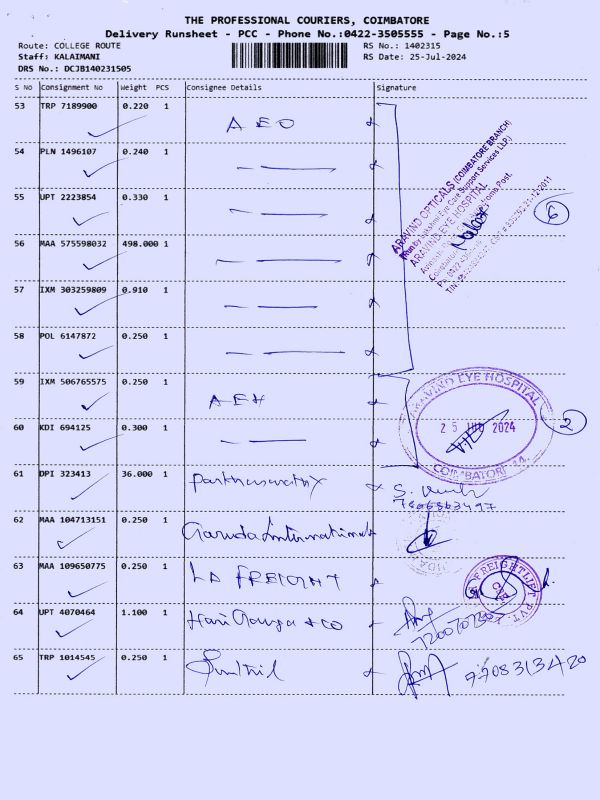 THE PROFESSIONAL COURIERS, COIMBATORE
Delivery Runsheet - PCC - Phone No.:0422-3505555 - Page No.:5
Route: COLLEGE ROUTE RS No.: 1402315
Staff: KALAIMANI RS Date: 25-Jul-2024
DRS No.: DCJB140231505
S No Consignment No Weight PCS Consignee Details Signature
53 TRP 7189900 0.220 1 AEO
54 PLN 1496107 0.240 1
55 UPT 2223854 0.330 1
56 MAA 575598032 498.000 1
57 IXM 303259809 0.910 1
58 POL 6147872 0.250 1
ARAVIND OPTICALS (COIMBATORE BRANCH)
ARAVIND EYE HOSPITAL
6
59 IXM 506765575 0.250 1 AEH
60 KDI 694125 0.300 1
ARAVIND EYE HOSPITAL
25 JUL 2024
COIMBATORE-14.
2
61 DPI 323413 36.000 1
62 MAA 104713151 0.250 1 Garuda International
63 MAA 109650775 0.250 1 LA FREIGHT
64 UPT 4070464 1.100 1
65 TRP 1014545 0.250 1